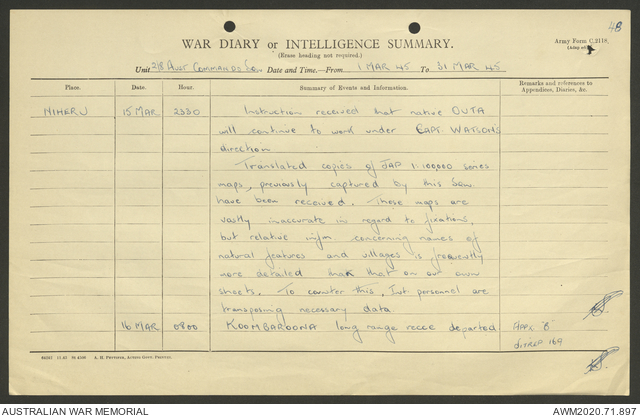 48
WAR DIARY or INTELLIGENCE SUMMARY.
(Erase heading not required.)
Army Form C.2118.
Unit 2/8 Aust Commando Sqn Date and Time—From 1 MAR 45 To 31 MAR 45
Place. Date. Hour. Summary of Events and Information. Remarks and references to Appendices, Diaries, &c.
NIHERU 15 MAR 2330 Instruction received that native OUTA
will continue to work under CAPT. WATSON'S
direction
Translated copies of JAP 1:100,000 series
maps, previously captured by this Sqn.
have been received. These maps are
vastly inaccurate in regard to fixations,
but relative infm. concerning names of
natural features and villages is frequently
more detailed than that on our own
sheets. To counter this, Int. personnel are
transposing necessary data.
16 MAR 0800 KOOMBAROONA long range recce departed Appx "B"
SITREP 169
A. H. Pettifer, Acting Govt. Printer.
AUSTRALIAN WAR MEMORIAL
AWM2020.71.897